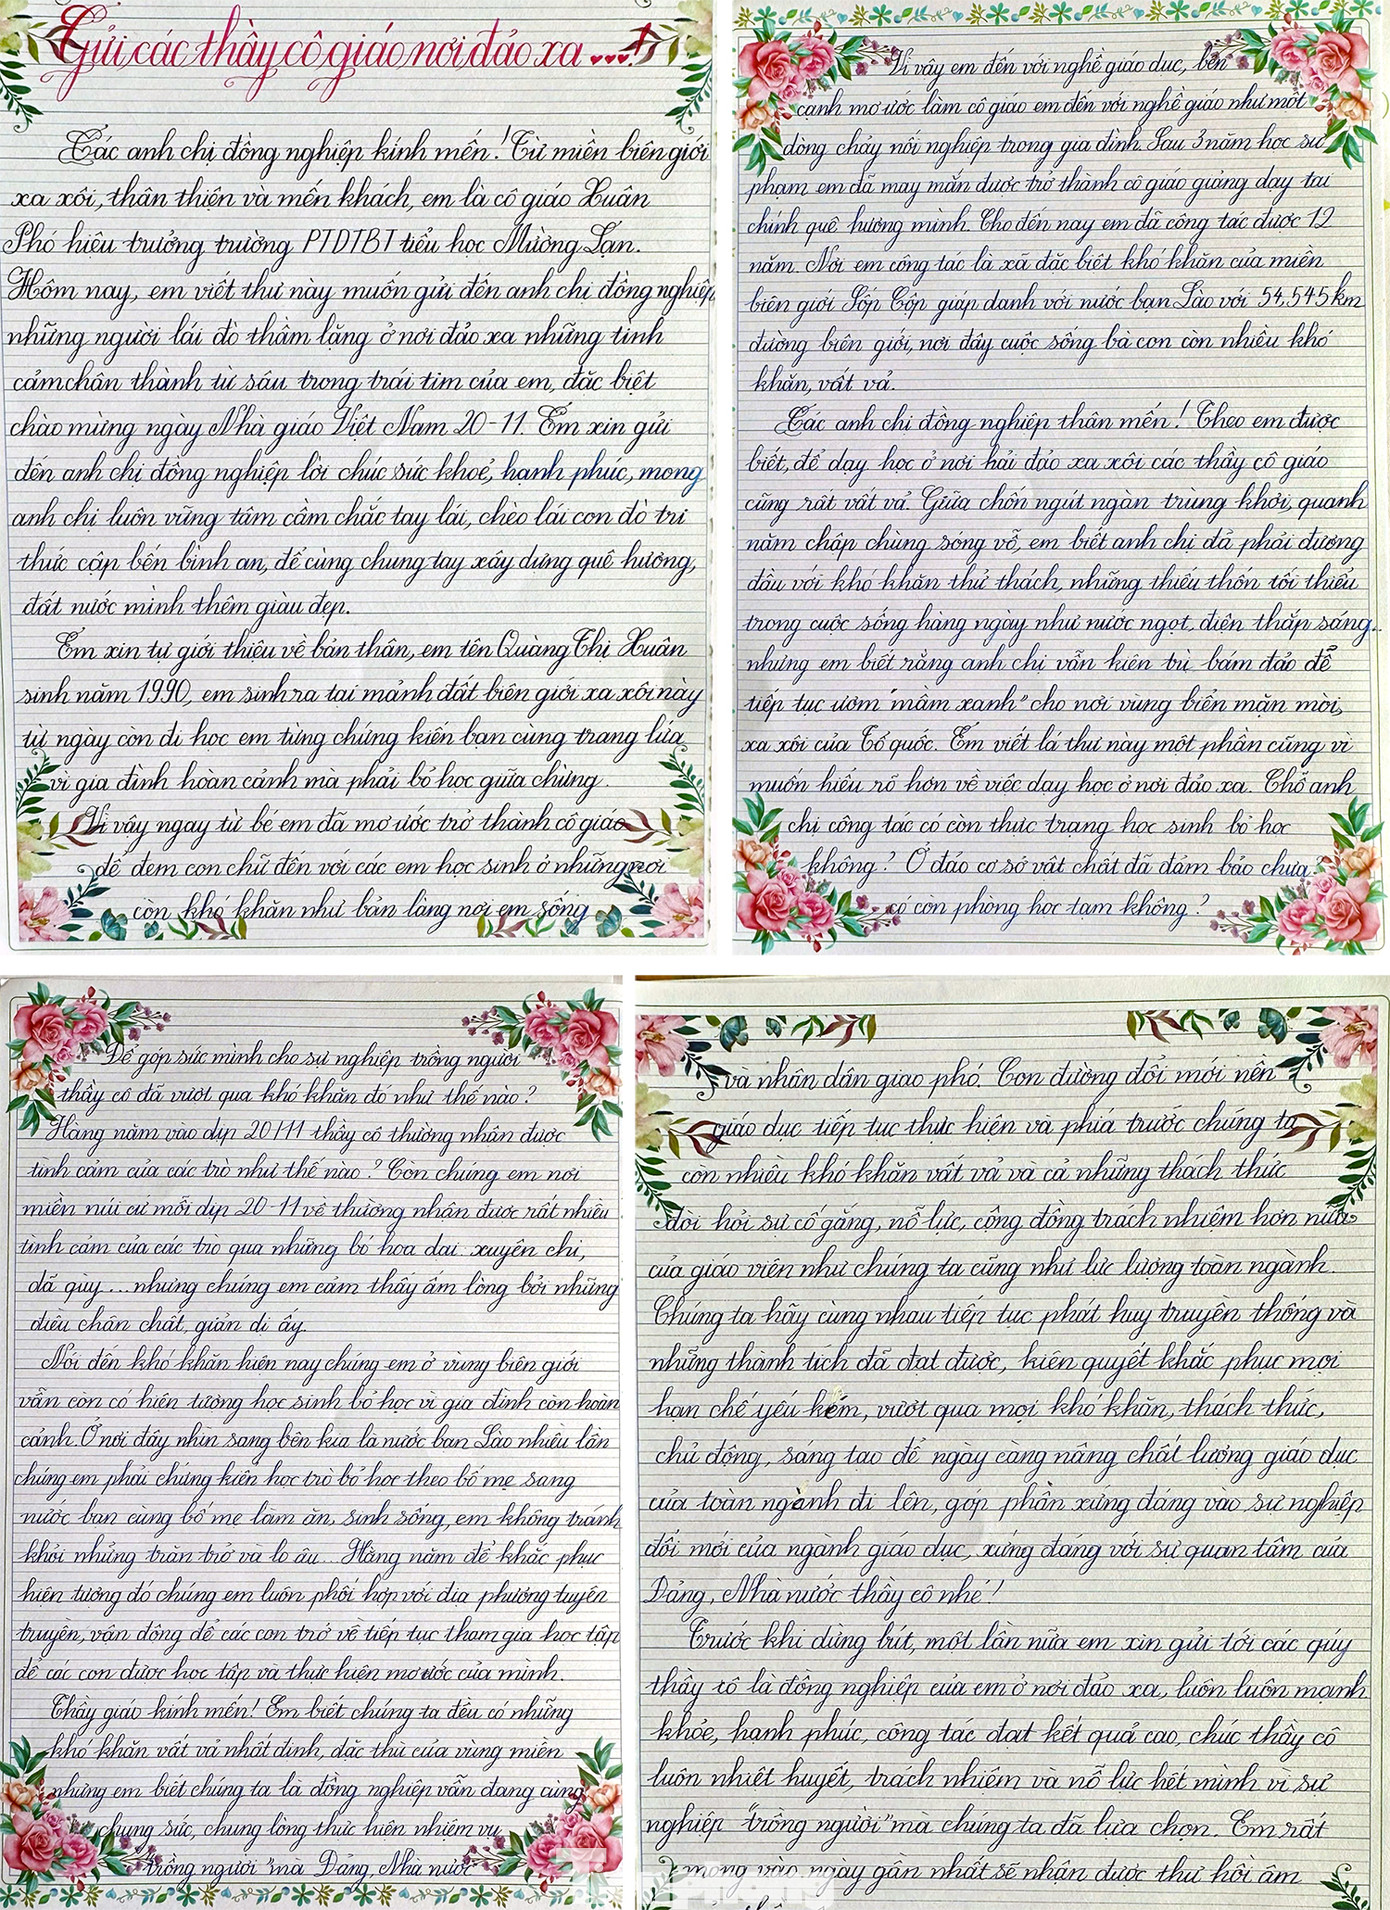 Gửi các thầy cô giáo nơi đảo xa
Các anh chị đồng nghiệp kính mến! Từ miền biên giới
xa xôi, thân thiện và mến khách, em là cô giáo Xuân
Phó hiệu trưởng trường PTDTBT tiểu học Mường Lạn.
Hôm nay, em viết thư này muốn gửi đến anh chị đồng nghiệp
những người lái đò thầm lặng ở nơi đảo xa những tình
cảm chân thành từ sâu trong trái tim của em, đặc biệt
chào mừng ngày Nhà giáo Việt Nam 20-11. Em xin gửi
đến anh chị đồng nghiệp lời chúc sức khoẻ, hạnh phúc, mong
anh chị luôn vững tâm cầm chắc tay lái, chèo lái con đò tri
thức cập bến bình an, để cùng chung tay xây dựng quê hương,
đất nước mình thêm giàu đẹp.
Em xin tự giới thiệu về bản thân, em tên Quàng Thị Xuân
sinh năm 1990, em sinh ra tại mảnh đất biên giới xa xôi này
từ ngày còn đi học em từng chứng kiến bạn cùng trang lứa
vì gia đình hoàn cảnh mà phải bỏ học giữa chừng.
Vì vậy ngay từ bé em đã mơ ước trở thành cô giáo
để đem con chữ đến với các em học sinh ở những nơi
còn khó khăn như bản làng nơi em sống
Vì vậy em đến với nghề giáo dục, bên
cạnh mơ ước làm cô giáo em đến với nghề giáo như một
dòng chảy nối nghiệp trong gia đình. Sau 3 năm học sư
phạm em đã may mắn được trở thành cô giáo giảng dạy tại
chính quê hương mình. Cho đến nay em đã công tác được 12
năm. Nơi em công tác là xã đặc biệt khó khăn của miền
biên giới Sốp Cộp giáp danh với nước bạn Lào với 54,545km
đường biên giới, nơi đây cuộc sống bà con còn nhiều khó
khăn, vất vả.
Các anh chị đồng nghiệp thân mến! Theo em được
biết, để dạy học ở nơi hải đảo xa xôi các thầy cô giáo
cũng rất vất vả. Giữa chốn ngút ngàn trùng khơi, quanh
năm chập chùng sóng vỗ, em biết anh chị đã phải đương
đầu với khó khăn thử thách, những thiếu thốn tối thiểu
trong cuộc sống hàng ngày như nước ngọt, điện thắp sáng...
nhưng em biết rằng anh chị vẫn kiên trì bám đảo để
tiếp tục ươm "mầm xanh" cho nơi vùng biển mặn mòi,
xa xôi của Tổ quốc. Em viết lá thư này một phần cũng vì
muốn hiểu rõ hơn về việc dạy học ở nơi đảo xa. Chỗ anh
chị công tác có còn thực trạng học sinh bỏ học
không? Ở đảo cơ sở vật chất đã đảm bảo chưa?
có còn phòng học tạm không?
Để góp sức mình cho sự nghiệp trồng người
thầy cô đã vượt qua khó khăn đó như thế nào?
Hàng năm vào dịp 20/11 thầy cô thường nhận được
tình cảm của các trò như thế nào? Còn chúng em nơi
miền núi cứ mỗi dịp 20-11 về thường nhận được rất nhiều
tình cảm của các trò qua những bó hoa dại: xuyến chi,
dã quỳ... nhưng chúng em cảm thấy ấm lòng bởi những
điều chân chất, giản dị ấy.
Nói đến khó khăn hiện nay chúng em ở vùng biên giới
vẫn còn có hiện tượng học sinh bỏ học vì gia đình còn hoàn
cảnh. Ở nơi đây nhìn sang bên kia là nước bạn Lào nhiều lần
chúng em phải chứng kiến học trò bỏ học theo bố mẹ sang
nước bạn cùng bố mẹ làm ăn, sinh sống, em không tránh
khỏi những trăn trở và lo âu... Hằng năm để khắc phục
hiện tượng đó chúng em luôn phối hợp với địa phương tuyên
truyền, vận động để các con trở về tiếp tục tham gia học tập
để các con được học tập và thực hiện mơ ước của mình.
Thầy giáo kính mến! Em biết chúng ta đều có những
khó khăn vất vả nhất định, đặc thù của vùng miền
nhưng em biết chúng ta là đồng nghiệp vẫn đang cùng
chung sức, chung lòng thực hiện nhiệm vụ
trồng người" mà Đảng, Nhà nước
và nhân dân giao phó. Con đường đổi mới nền
giáo dục tiếp tục thực hiện và phía trước chúng ta
còn nhiều khó khăn vất vả và cả những thách thức
đòi hỏi sự cố gắng, nỗ lực, cộng đồng trách nhiệm hơn nữa
của giáo viên như chúng ta cũng như lực lượng toàn ngành.
Chúng ta hãy cùng nhau tiếp tục phát huy truyền thống và
những thành tích đã đạt được, kiên quyết khắc phục mọi
hạn chế yếu kém, vượt qua mọi khó khăn, thách thức,
chủ động, sáng tạo để ngày càng nâng chất lượng giáo dục
của toàn ngành đi lên, góp phần xứng đáng vào sự nghiệp
đổi mới của ngành giáo dục, xứng đáng với sự quan tâm của
Đảng, Nhà nước thầy cô nhé!
Trước khi dừng bút, một lần nữa em xin gửi tới các quý
thầy cô là đồng nghiệp của em ở nơi đảo xa, luôn luôn mạnh
khỏe, hạnh phúc, công tác đạt kết quả cao, chúc thầy cô
luôn nhiệt huyết, trách nhiệm và nỗ lực hết mình vì sự
nghiệp "trồng người" mà chúng ta đã lựa chọn. Em rất
mong vào ngày gần nhất sẽ nhận được thư hồi âm